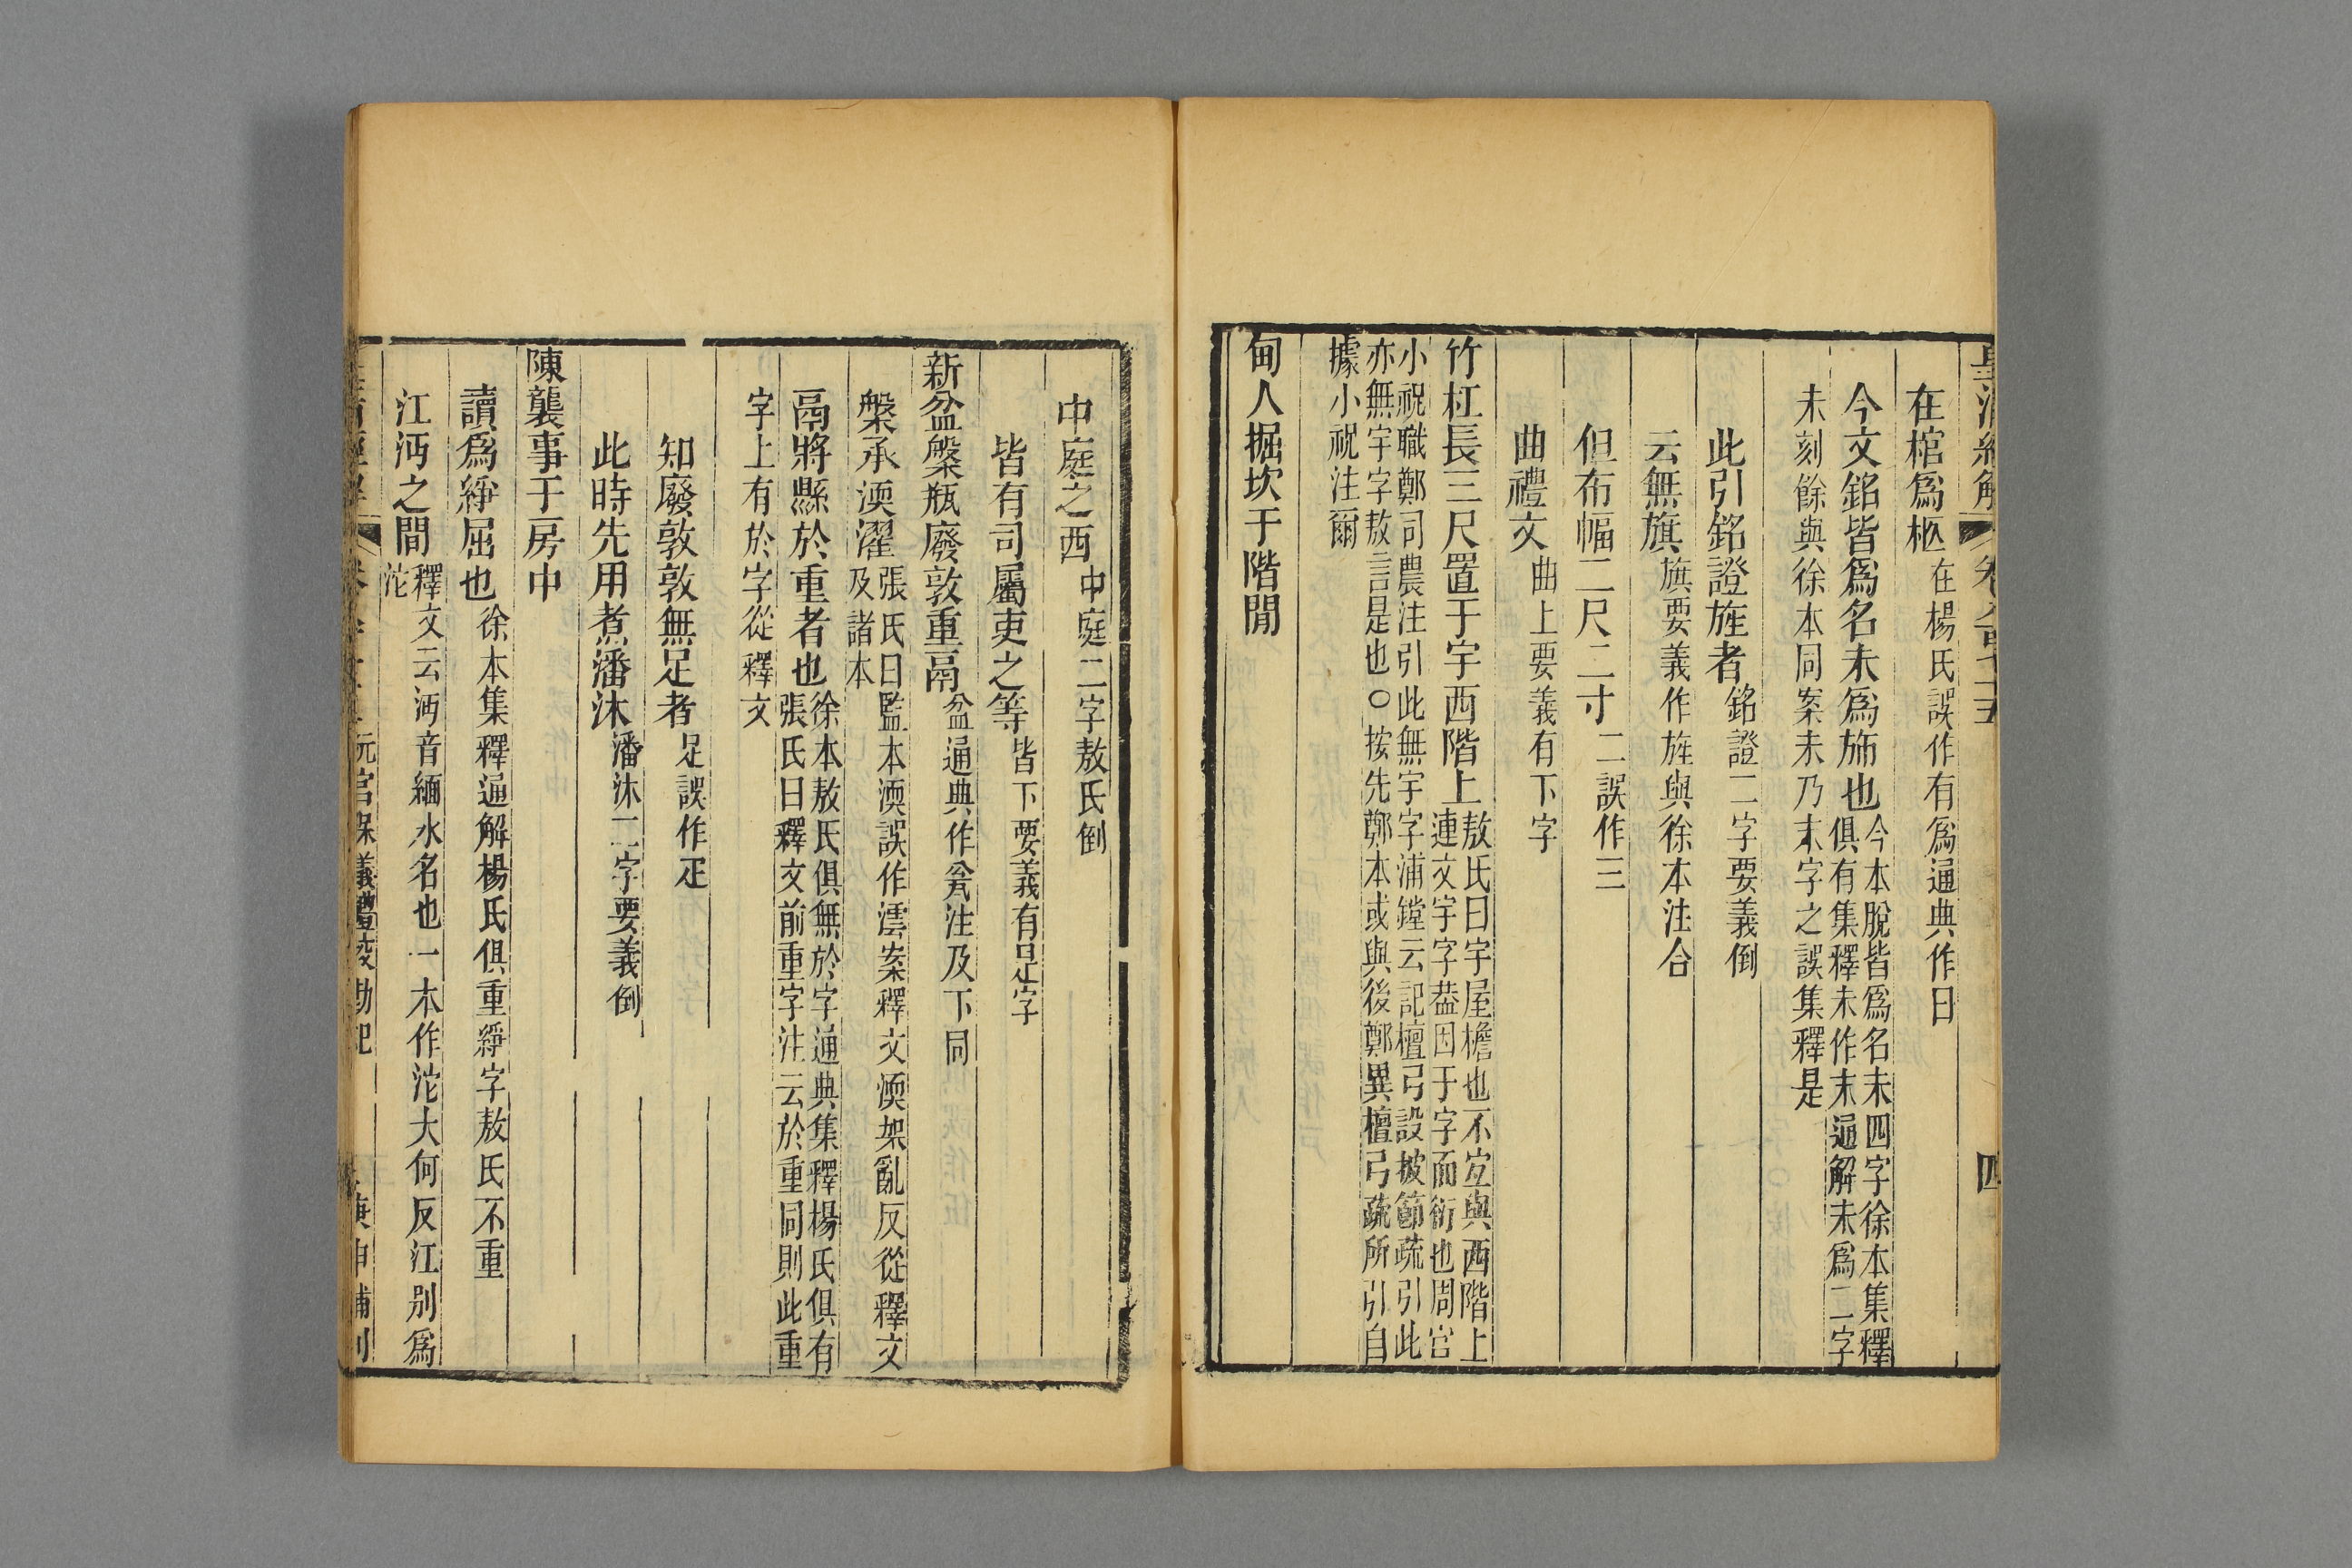 在棺爲柩在楊氏誤作有爲通典作日
今文銘皆爲名末爲斾也今本脫皆爲名末四字徐本集釋
俱有集釋末作末通解末爲二字
未刻餘與徐本同案未乃末字之誤集釋是
此引銘證旌者銘證二字要義倒
云無旗旗要義作旌與徐本注合
但布幅二尺二寸二誤作三
曲禮文曲上要義有下字
竹杠長三尺置于宇西階上敖氏曰宇屋檐也不宜與西階上
連文宇字葢因于字而衍也周官
小祝職鄭司農注引此無宇字浦鏜云記檀弓設披節疏引此
亦無宇字敖言是也○按先鄭本或與後鄭異檀弓疏所引自
據小祝注爾
甸人掘坎于階閒
四
中庭之西中庭二字敖氏倒
皆有司屬吏之等皆下要義有是字
新盆槃瓶廢敦重鬲盆通典作瓫注及下同
槃承渜濯張氏曰監本渜誤作澐案釋文渜架亂反從釋文
及諸本
鬲將縣於重者也徐本敖氏俱無於字通典集釋楊氏俱有
張氏曰釋文前重字注云於重同則此重
字上有於字從釋文
知廢敦敦無足者足誤作疋
此時先用煮潘沐潘沐二字要義倒
陳襲事于房中
讀爲綪屈也徐本集釋通解楊氏俱重綪字敖氏不重
江沔之間釋文云沔音緬水名也一本作沱大何反江別爲
沱